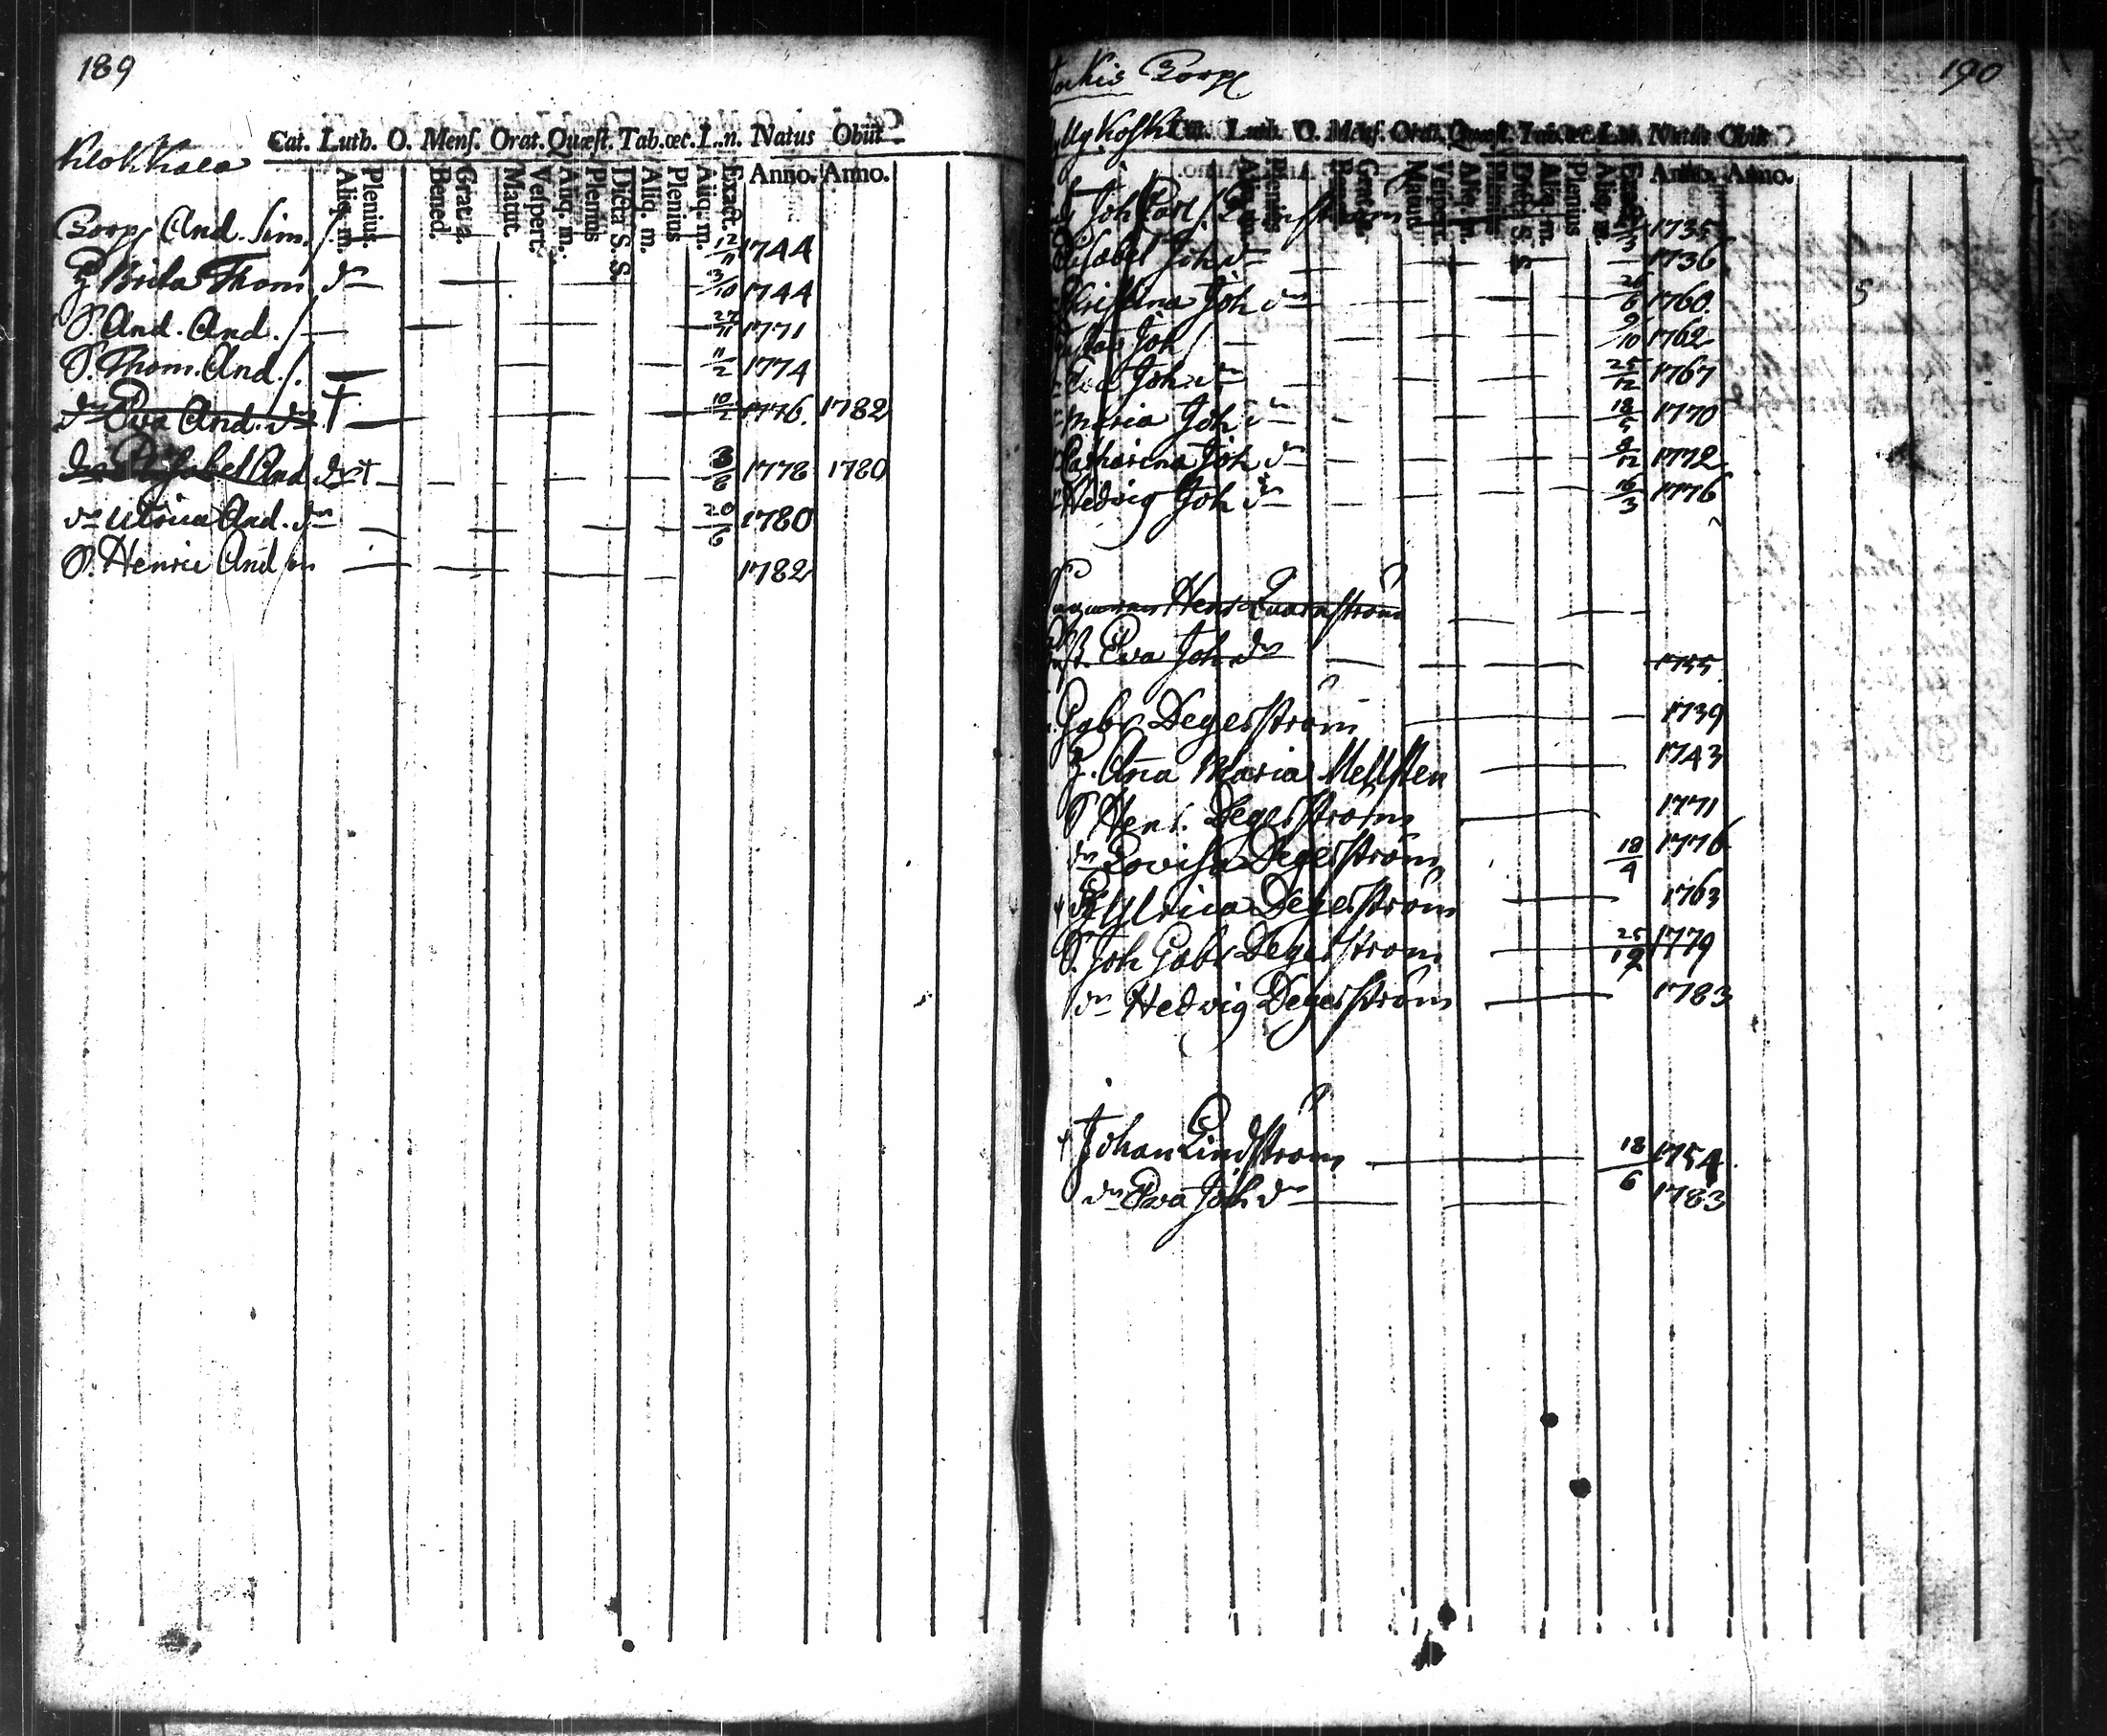 189
Cat. Luth. O. Mens. Orat. Quæst. Tab. œc. L..n. Natus Obiit
Klokkala
Aliq. m. Plenius. Bened. Grat. a. Matut. Vespert. Aliq. m. Plenius Dicta S. S. Aliq. m. Plenius Aliq. m. Exact. Anno. Anno.
And. Sim. 12/11 1744
Brita Thom. dr 13/10 1744
S. And. And. 27/11 1771
S. Thom. And. 11/2 1774
dr Eva And. dr † 10/2 1776. 1782
And. dr † 1778 1780
dr Ulrica And. dr 20/6 1780
S. Henric And 1782
190
Cat. Luth. O. Mens. Orat. Quæst. Tab. œc. L.n. Natus Obiit
Anno. Anno.
Joh 1735
Joh dr 1736
Joh dr 26/6 1760.
Joh 9/10 1762
Joh dr 25/12 1767
Maria Joh dr 18/5 1770
Catharina Joh dr 8/12 1772
Hedvig Joh dr 16/3 1776
Henr Quarnström
Eva Joh dr 1755.
Gabr Degerström 1739
Anna Maria Mellsten 1743
S Henr. Degerström 1771
dr Lovisa Degerström 18/4 1776
Ulrica Degerström 1763
S. Joh Gabr Degerström 25/12 1779
dr Hedvig Degerström 1783
Johan Lindström 18/6 1754
dr Eva Joh dr 1783